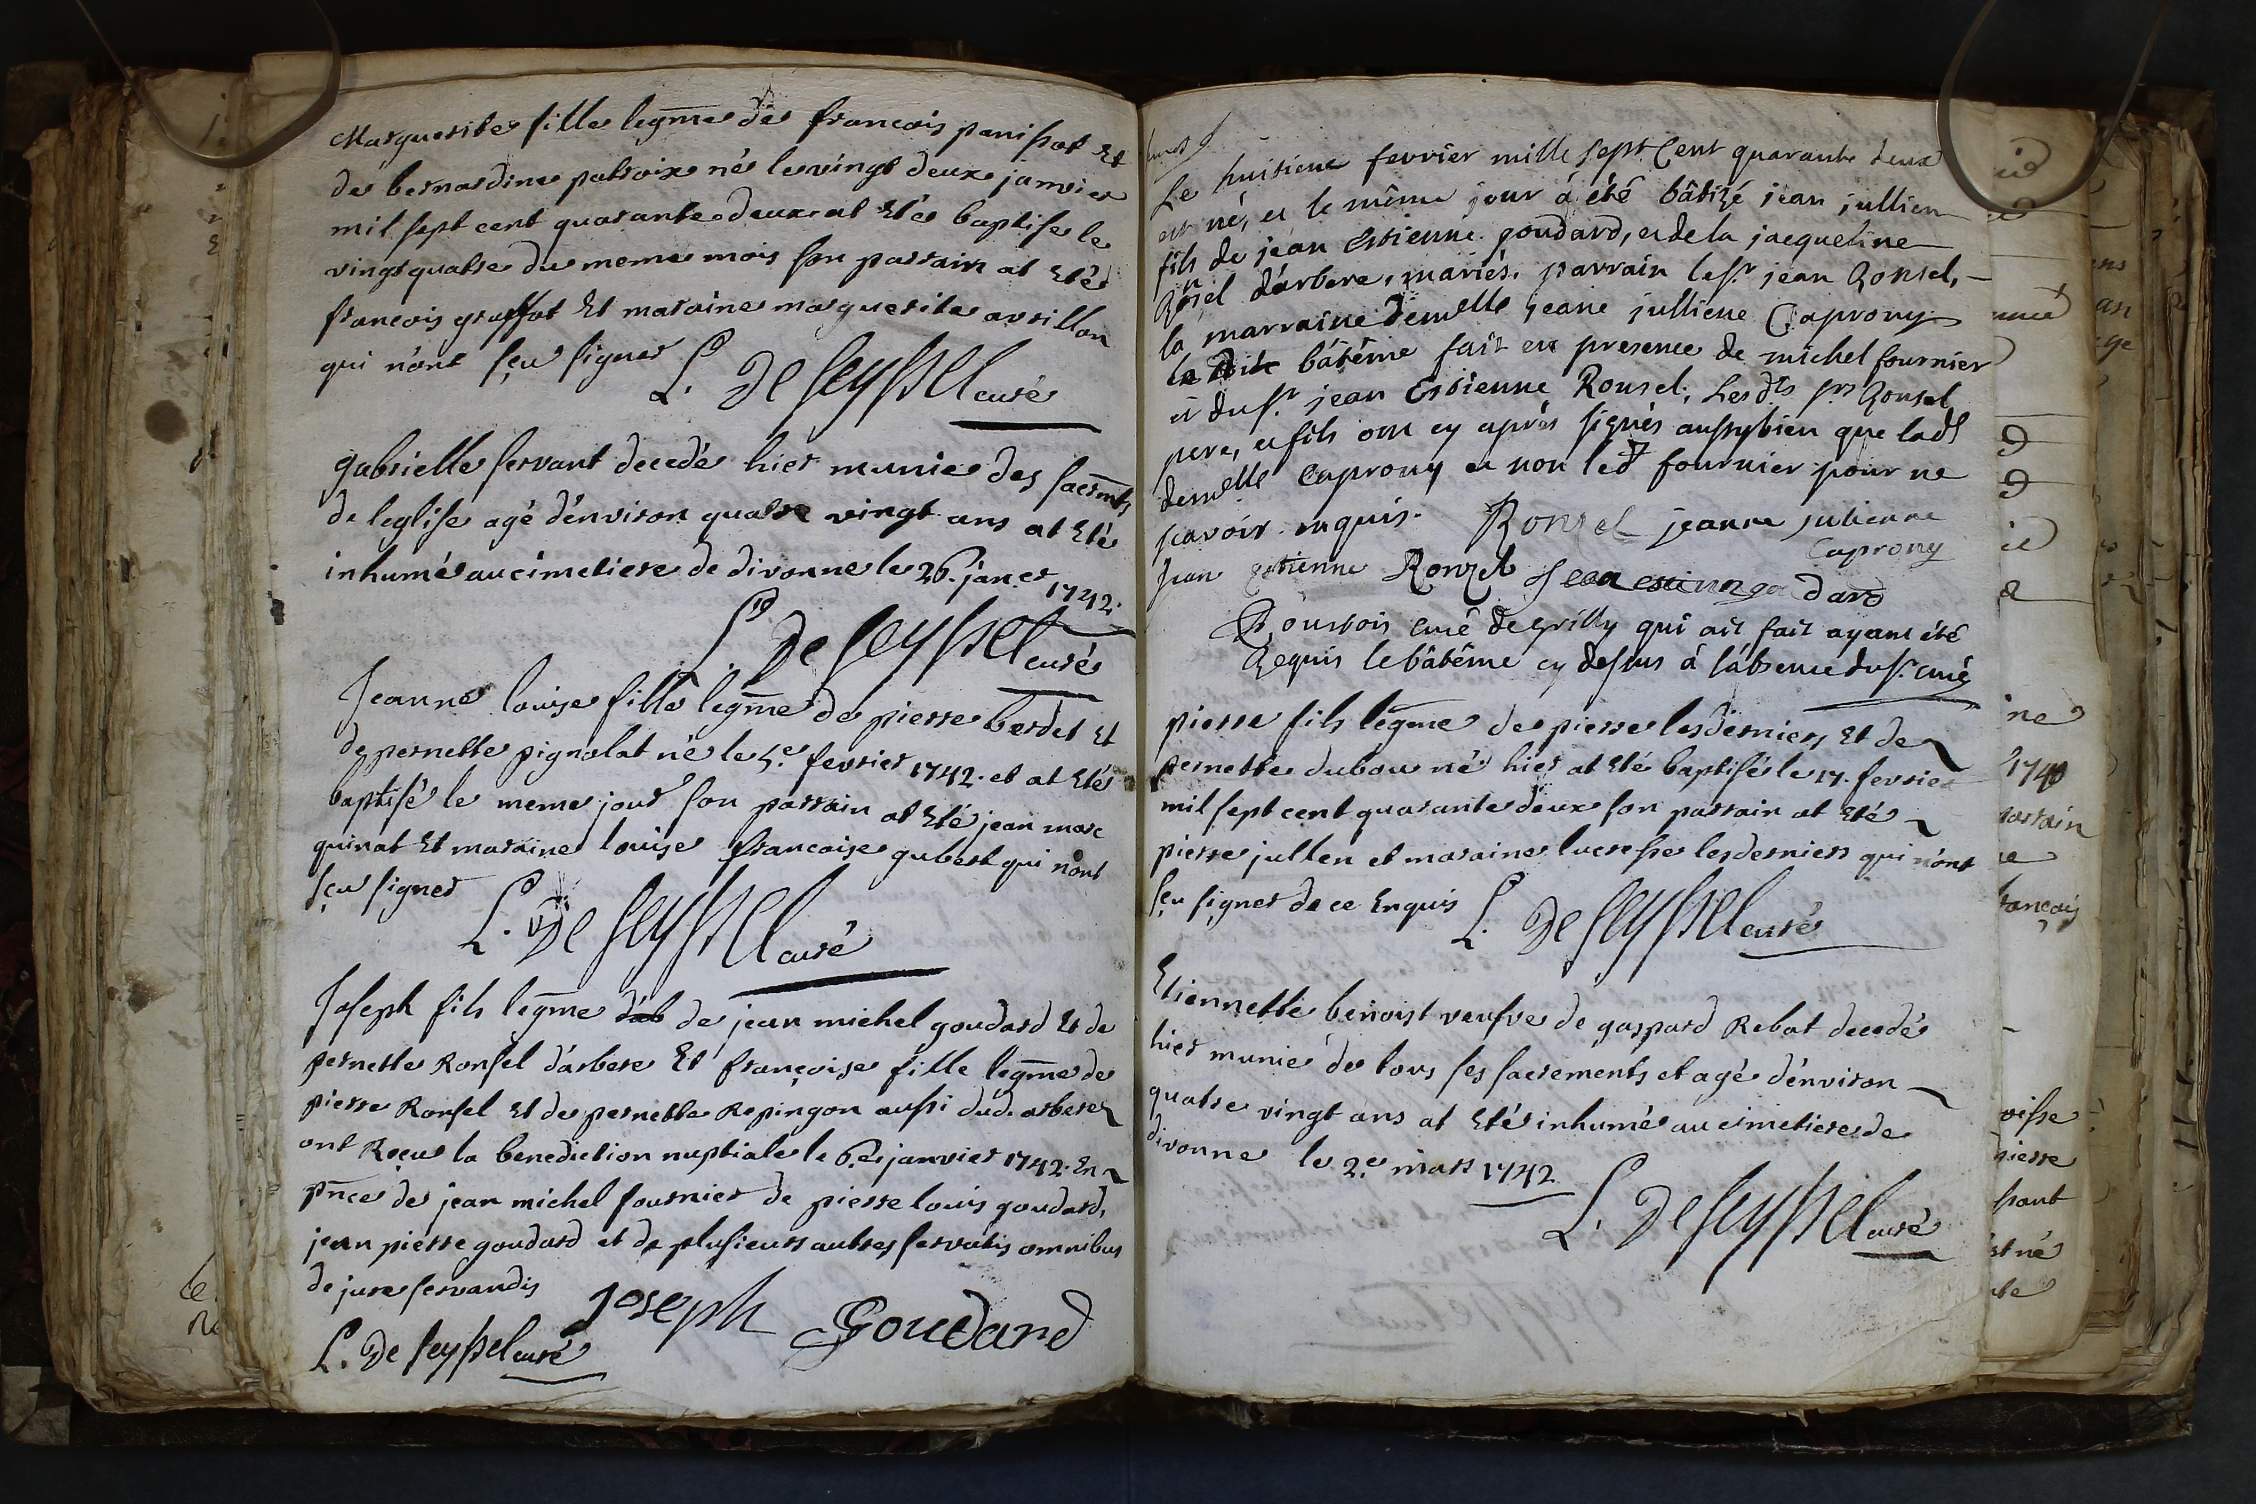 Marguerite fille legme de francois panissot Et
de bernardine patroix né le vingt deux janvier
mil sept cent quarante deux at Eté baptise le
vingt quatre du meme mois son parrain at Eté
francois graffot Et maraine marguerite avrillon
qui n'ont sçu signer L. De seyssel curé
gabrielle servant decedé hier munie des sacrmts
de leglise agé d'environ quatre vingt ans at Eté
inhumé au cimetiere de divonne le 26. janer 1742.
L. De seyssel curé
Jeanne louise fille legme de pierre berdet Et
de pernette pignolat né le 5e. fevrier 1742. et at Eté
baptisé le meme jour son parrain at Eté jean marc
quinat Et maraine louise francoise gubert qui n'ont
sçu signer L. De seyssel curé
Joseph fils legme de jean michel goudard Et de
pernette Ronsel d'arbere Et françoise fille legme de
pierre Ronsel Et de pernette Repingon aussi dud. arbere
ont Reçu la benediction nuptiale le 6e. janvier 1742. En
pnce de jean michel fournier de pierre louis goudard,
jean pierre goudard et de plusieurs autres servatis omnibus
de jure servandis
Joseph Goudard
L. De seyssel curé
Le huitieme fevrier mille sept Cent quarante deux
est né, et le même jour á été bâtizé jean jullien
fils de jean Estienne goudard, et de la jacqueline
Ronsel d'arbere, mariés. parrain le sr. jean Ronsel,
la marraine demelle jeane julliene Caprony
le dit bâtême fait en presence de michel fournier
et du sr. jean Estienne Ronsel; Les dts srs Ronsel
pere, et fils ont cy aprés signés aussy bien que lad.
demelle Caprony et non led. fournier pour ne
scavoir enquis. Ronzel jeanne julienne
Caprony
Jean estienne Ronzel Jean estienne goudard
curé de grilly qui ait fait ayant été
Requis le bâtême cy dessus á l'absence du sr. curé
pierre fils legme de pierre lesderniers Et de
pernette dubou né hier at Eté baptisé le 17. fevrier
mil sept cent quarante deux son parrain at Eté
pierre jullen et maraine lucresse lesderniers qui n'ont
sçu signer de ce Enquis L. De seyssel curé
Etiennette benoist veufve de gaspard Rebat decedé
hier munie de tous ses sacrements et agé d'environ
quatre vingt ans at Eté inhumé au cimetiere de
divonne le 2e. mars 1742
L. De seyssel curé